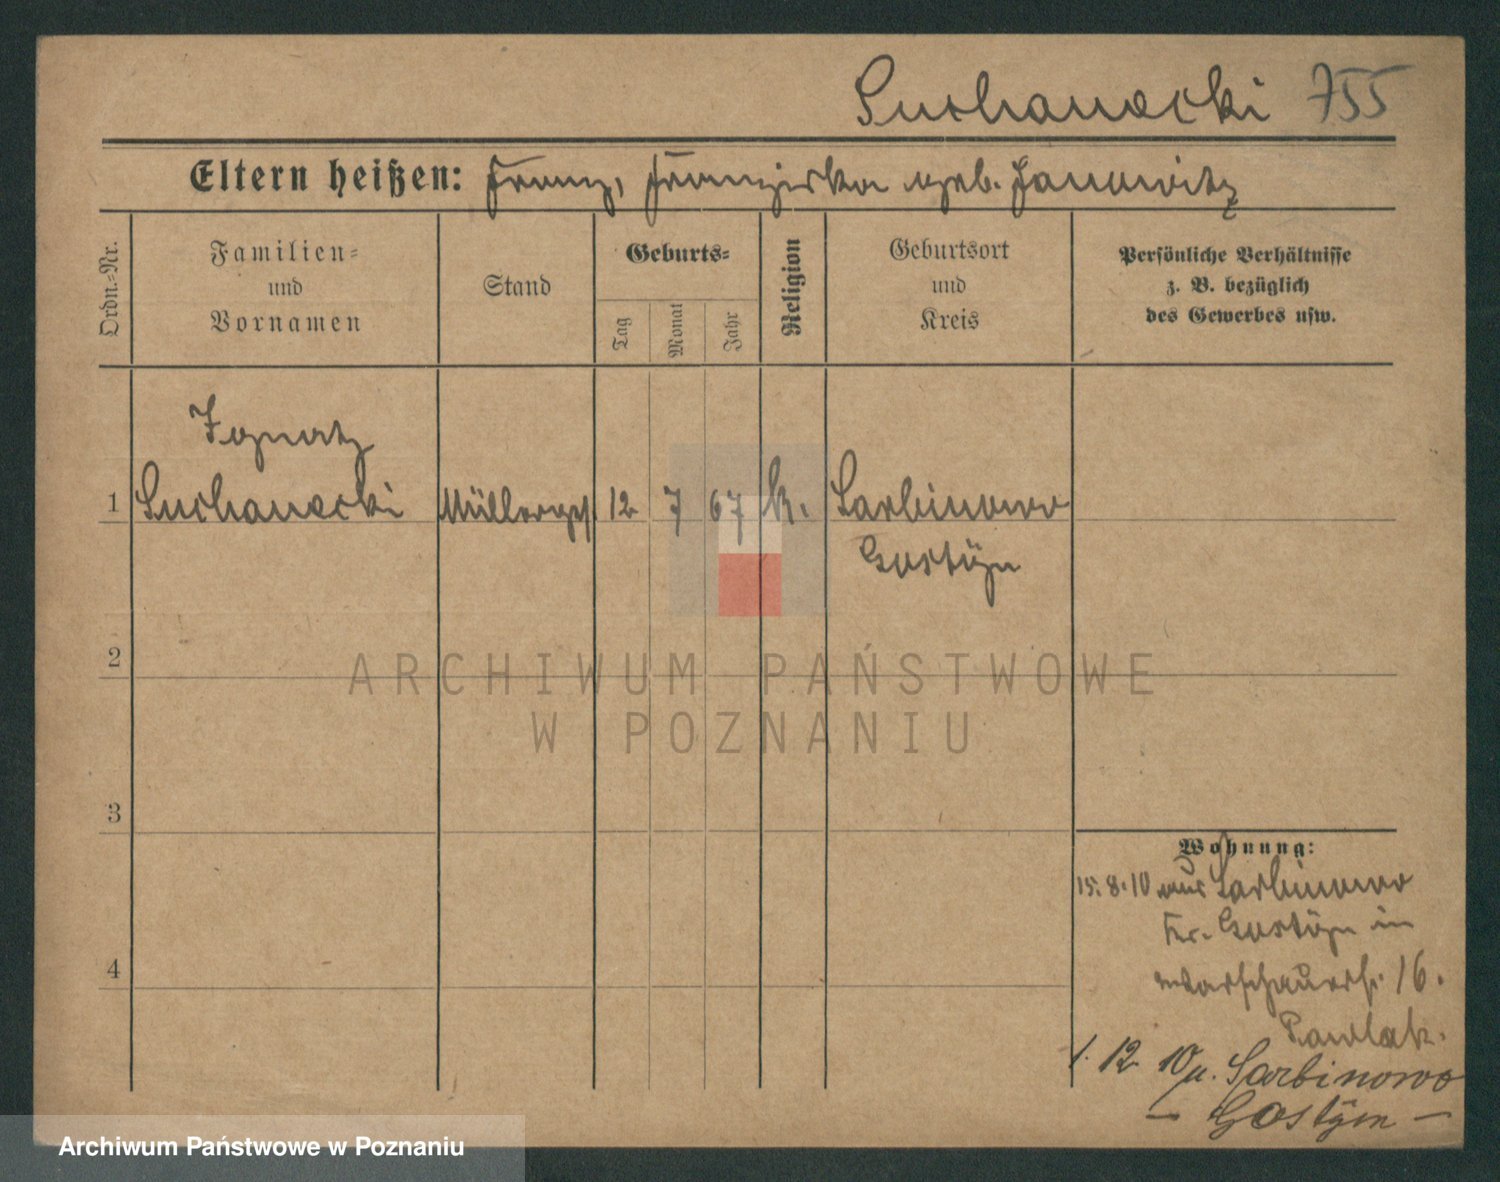 Suchanecki 755
Eltern heißen: Franz, Franziska geb. Janowitz
Ordn.-Nr.
Familien-
und
Vornamen
Stand
Geburts-
Tag
Monat
Jahr
Religion
Geburtsort
und
Kreis
Persönliche Verhältnisse
z. B. bezüglich
des Gewerbes usw.
Ignatz
1 Suchanecki Müllerges. 12 7 67 k. Sarbinowo
Gostÿn
2
3
4
Wohnung:
15.8.10 aus Sarbinowo
Kr. Gostÿn in
Warschauerst. 16.
Pawlak.
1. 12 10 n. Sarbinowo
— Gostÿn —
ARCHIWUM PAŃSTWOWE
W POZNANIU
Archiwum Państwowe w Poznaniu